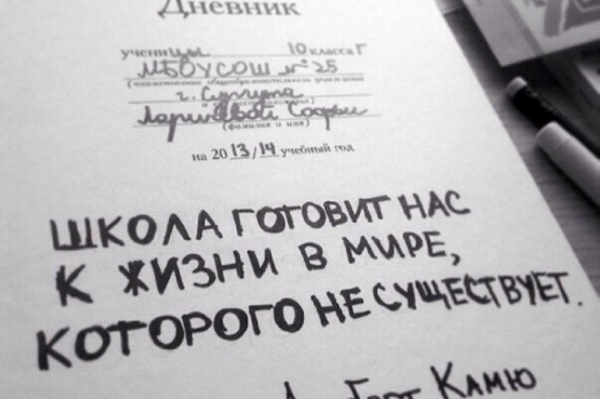 Дневник
ученицы 10 класса Г
МБОУСОШ №25
(наименование общеобразовательного учреждения
г. Сургута
Ларичевой Софьи
(фамилия и имя)
на 2013/14 учебный год
ШКОЛА ГОТОВИТ НАС
К ЖИЗНИ В МИРЕ,
КОТОРОГО НЕ СУЩЕСТВУЕТ.
КАМЮ